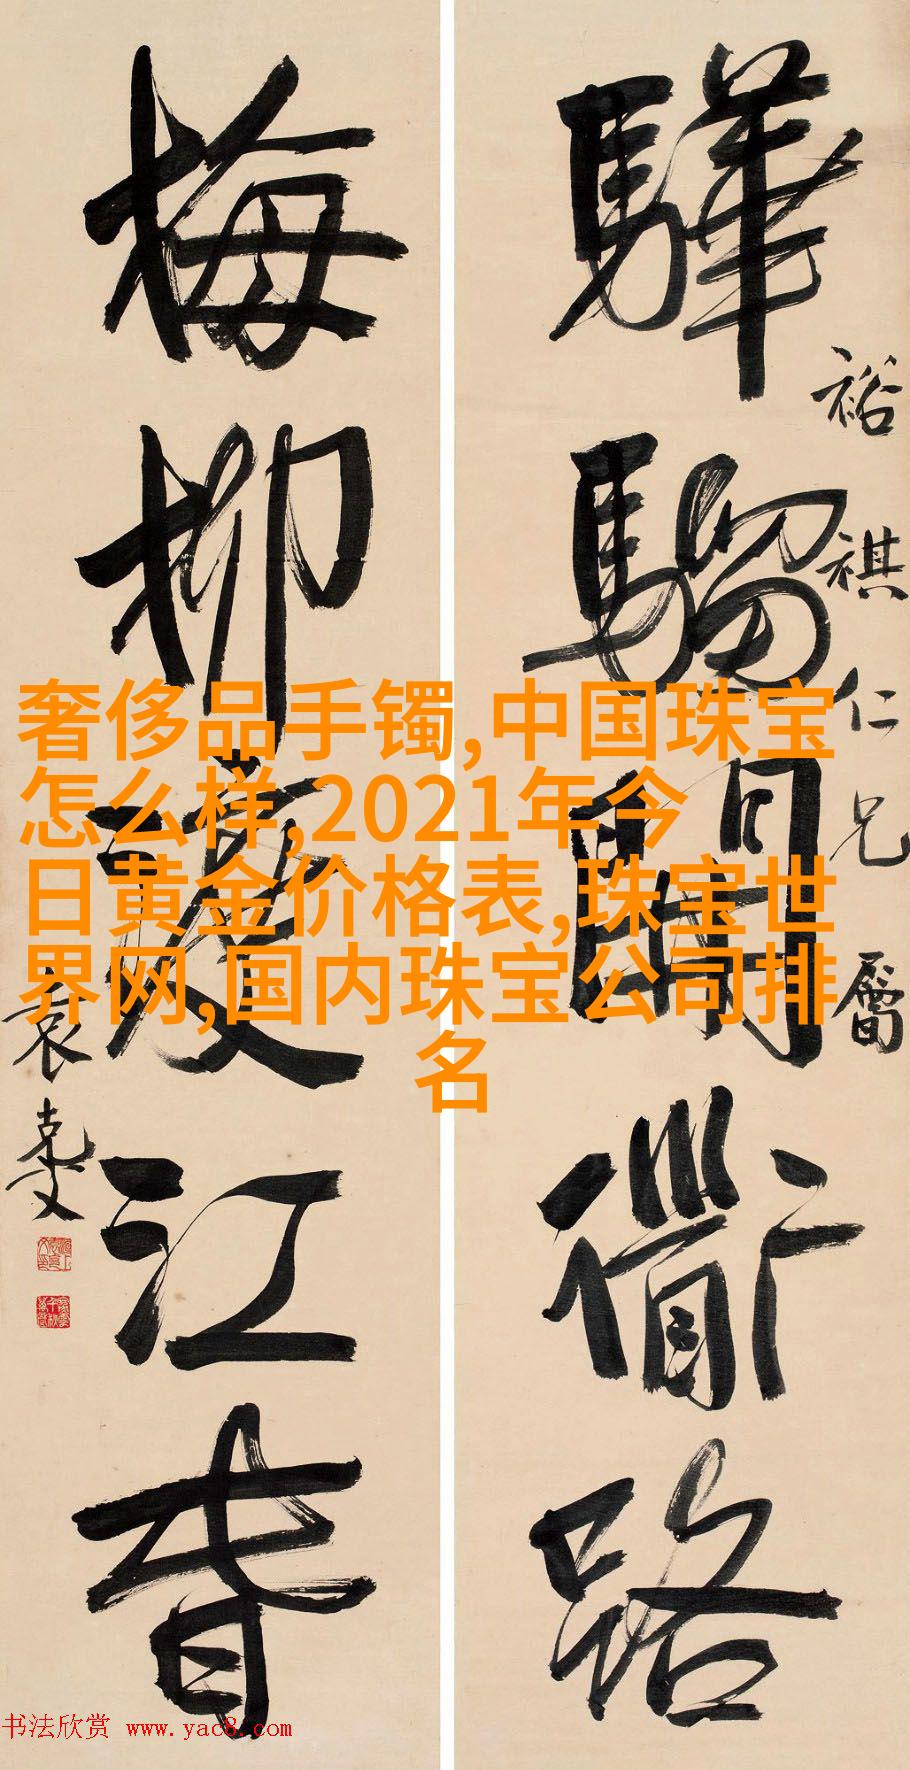 奢侈品手镯,中国珠宝
怎么样,2021年今
日黄金价格表,珠宝世
界网,国内珠宝公司排
名
驊騮開衟路
裕祺仁兄屬
梅柳江春
袁克文
书法欣赏 www.yac8.com